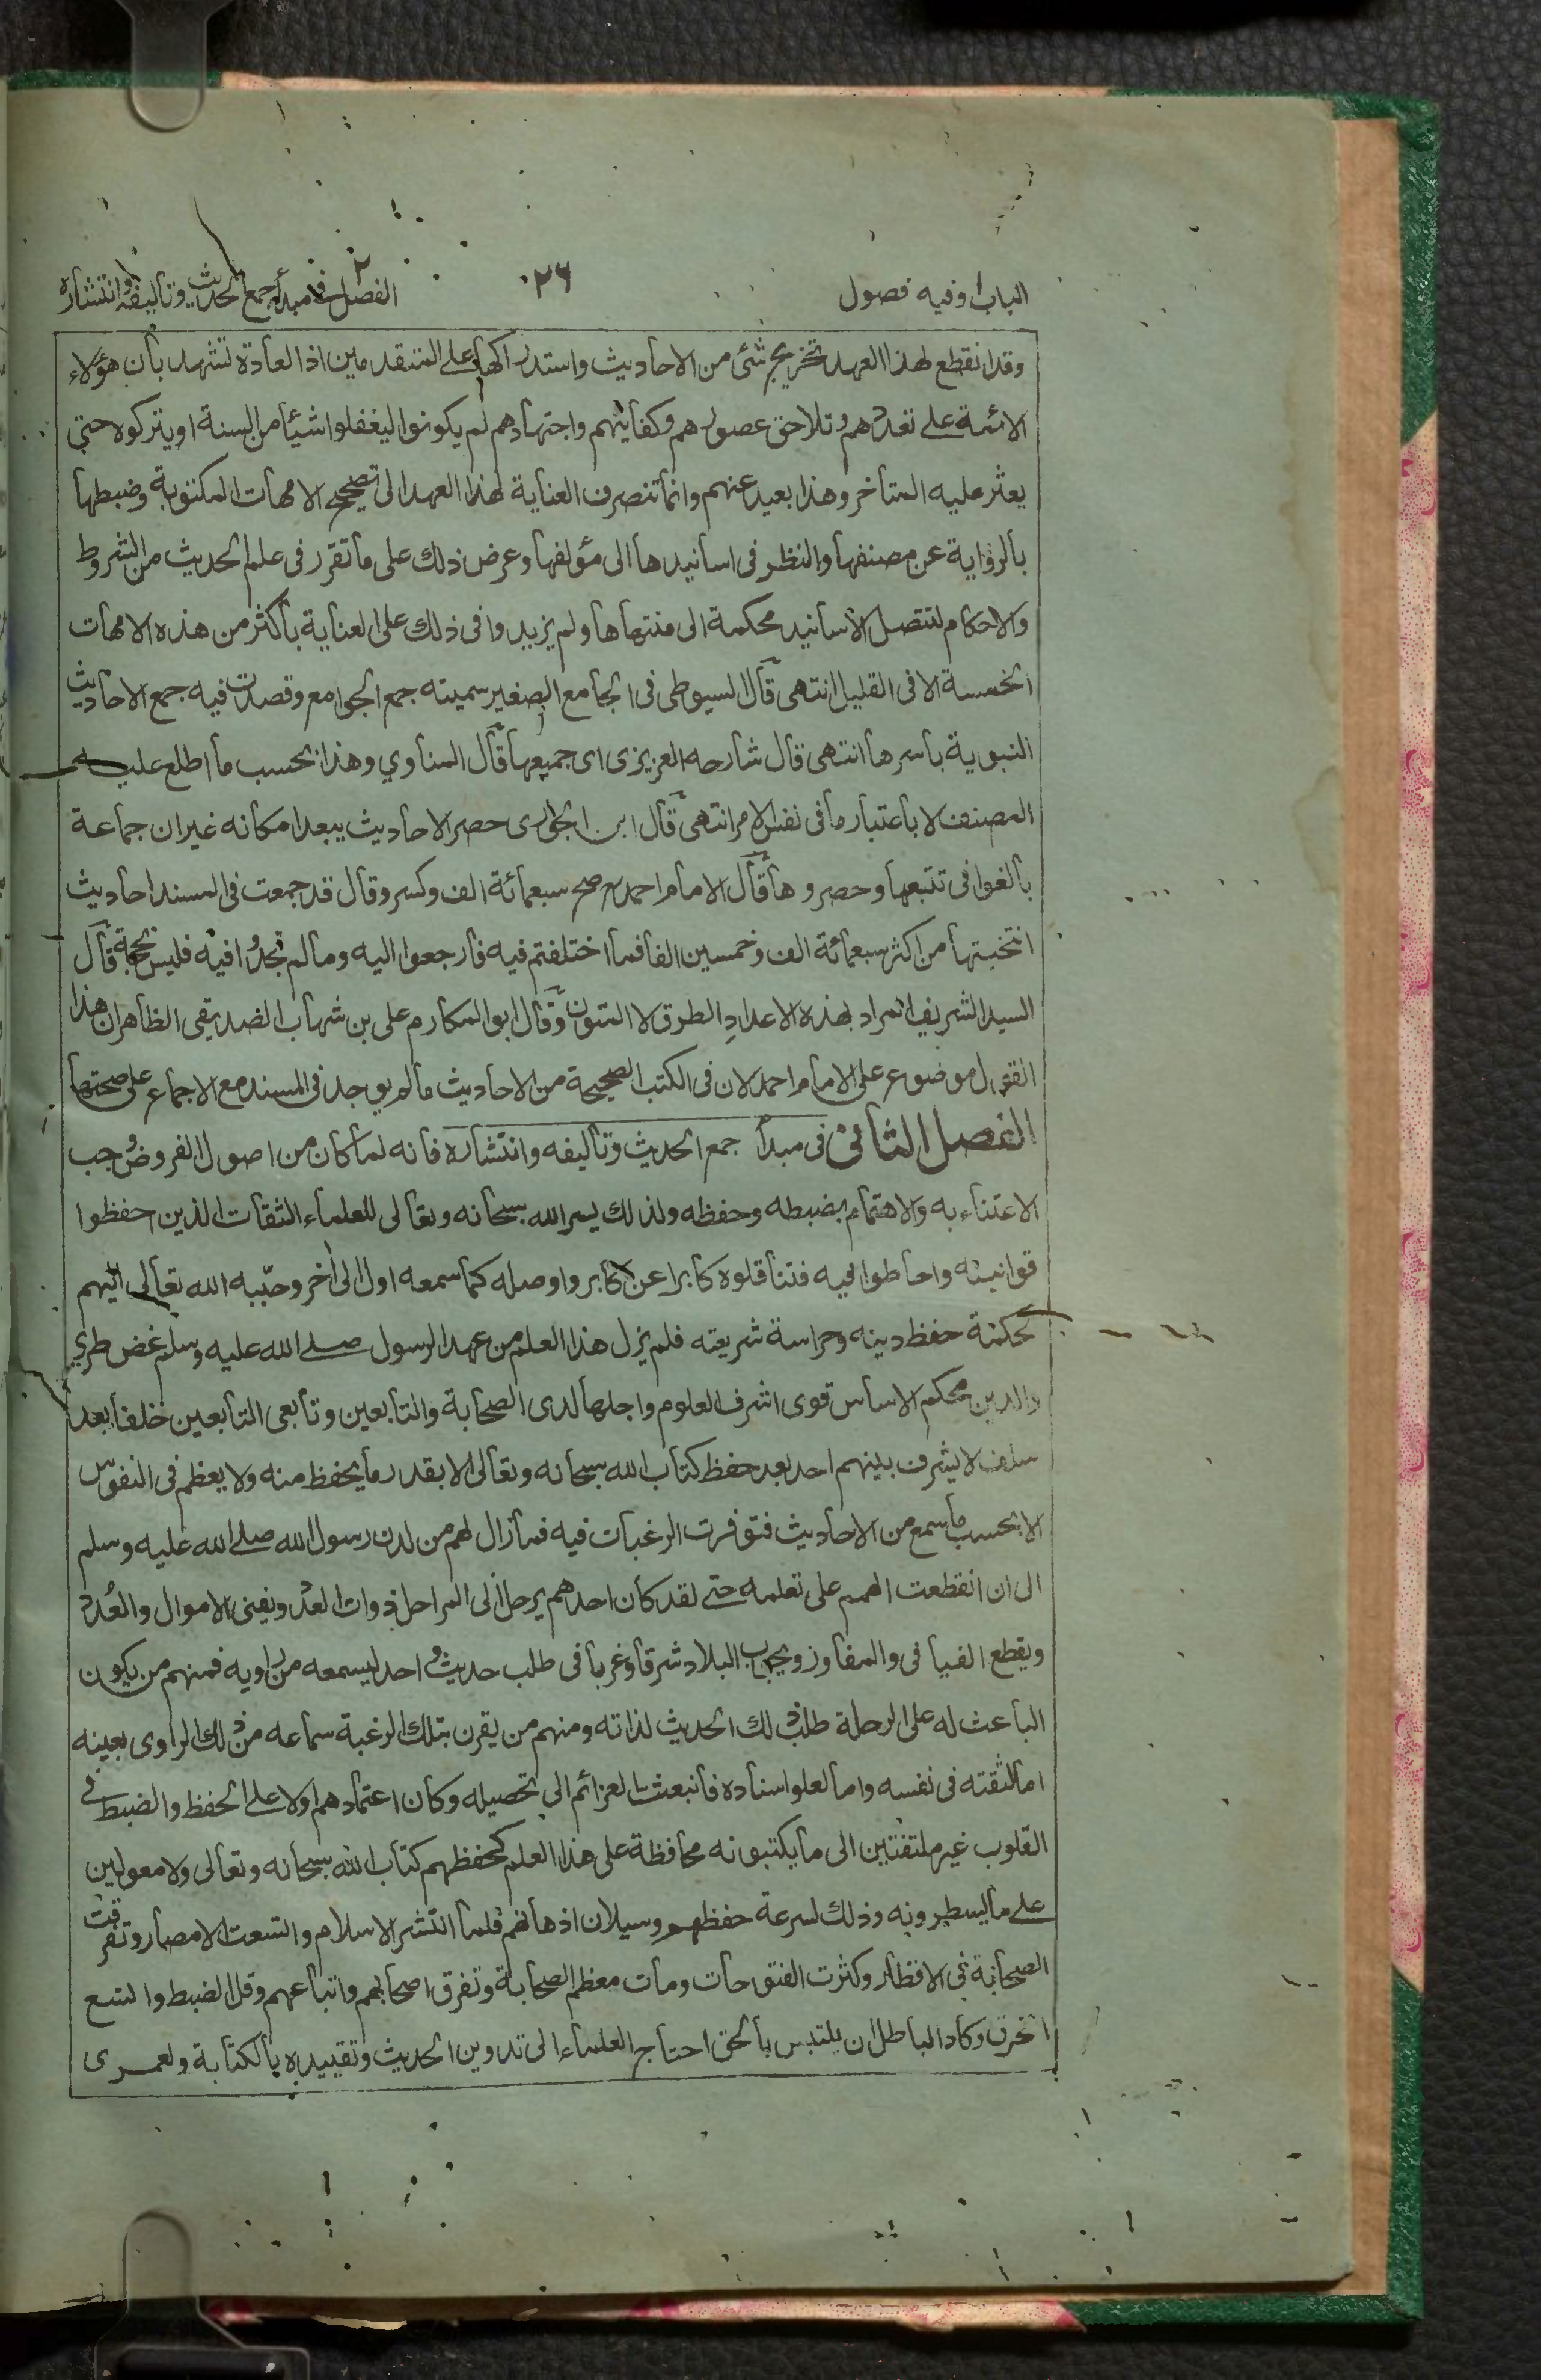 الباب ا وفيه فصول
٢٦
الفصل ٢ فى مبدأ جمع الحديث وتأليفه وانتشاره
وقد انقطع لهذا العهد تخريج شئ من الاحاديث واستدراكها على المتقدمين اذ العادة تشهد بأن هؤلاء
الائمة على تعددهم وتلاحق عصورهم وكفايتهم واجتهادهم لم يكونوا ليغفلوا شيئا من السنة او يتركوه حتى
يعثر عليه المتأخر وهذا بعيد عنهم وانما تنصرف العناية لهذا العهد الى تصحيح الامهات المكتوبة وضبطها
بالرواية عن مصنفها والنظر فى اسانيدها الى مؤلفها وعرض ذلك على ما تقرر فى علم الحديث من الشروط
والاحكام لتتصل الاسانيد محكمة الى منتهاها ولم يزيدوا فى ذلك على العناية بأكثر من هذه الامهات
الخمسة الا فى القليل انتهى قال السيوطى فى الجامع الصغير سميته جمع الجوامع وقصدت فيه جمع الاحاديث
النبوية بأسرها انتهى قال شارحه العزيزى اى جميعها قال المناوي وهذا بحسب ما اطلع عليه
المصنف لا باعتبار ما فى نفس الامر انتهى قال ابن الجوزى حصر الاحاديث يبعد امكانه غير ان جماعة
بالغوا فى تتبعها وحصروها قال الامام احمد صح سبعمائة الف وكسر وقال قد جمعت فى المسند احاديث
انتخبتها من اكثر سبعمائة الف وخمسين الفا فما اختلفتم فيه فارجعوا اليه وما لم تجدوا فيه فليس بحجة قال
السيد الشريف المراد بهذه الاعداد الطرق لا المتون وقال ابو المكارم على بن شهاب الصديقى الظاهر ان هذا
القول موضوع على الامام احمد لان فى الكتب الصحيحة من الاحاديث ما لم يوجد فى المسند مع الاجماع على صحتها
الفصل الثانى فى مبدأ جمع الحديث وتأليفه وانتشاره فانه لما كان من اصول الفروض وجب
الاعتناء به والاهتمام بضبطه وحفظه ولذلك يسر الله سبحانه وتعالى للعلماء الثقات الذين حفظوا
قوانينه واحاطوا فيه فتناقلوه كابرا عن كابر واوصله كما سمعه اول الى أخر وحببه الله تعالى اليهم
لحكمة حفظ دينه وحراسة شريعته فلم يزل هذا العلم من عهد الرسول صلى الله عليه وسلم غض طري
والدين محكم الاساس قوى اشرف العلوم واجلها لدى الصحابة والتابعين وتابعى التابعين خلفا بعد
سلف لا يشرف بينهم احد بعد حفظ كتاب الله سبحانه وتعالى الا بقدر ما يحفظ منه ولا يعظم فى النفوس
الا بحسب ما سمع من الاحاديث فتوفرت الرغبات فيه فما زال لهم من لدن رسول الله صلى الله عليه وسلم
الى ان انقطعت الهمم على تعلمه حتى لقد كان احدهم يرحل الى المراحل ذوات العدد ويفنى الاموال والعُدد
ويقطع الفيافى والمفاوز ويجوب البلاد شرقا وغربا فى طلب حديث واحد ليسمعه من راويه فمنهم من يكون
الباعث له على الرحلة طلب ذلك الحديث لذاته ومنهم من يقرن بتلك الرغبة سماعه من ذلك الراوى بعينه
اما لثقته فى نفسه واما لعلو اسناده فانبعثت العزائم الى تحصيله وكان اعتمادهم اولا على الحفظ والضبط فى
القلوب غير ملتفتين الى ما يكتبونه محافظة على هذا العلم كحفظهم كتاب الله سبحانه وتعالى ولا معولين
على ما يسطرونه وذلك لسرعة حفظهم وسيلان اذهانهم فلما انتشر الاسلام واتسعت الامصار وتفرقت
الصحابة فى الاقطار وكثرت الفتوحات ومات معظم الصحابة وتفرق اصحابهم واتباعهم وقل الضبط واتسع
الخرق وكاد الباطل ان يلتبس بالحق احتاج العلماء الى تدوين الحديث وتقييده بالكتابة ولعمرى